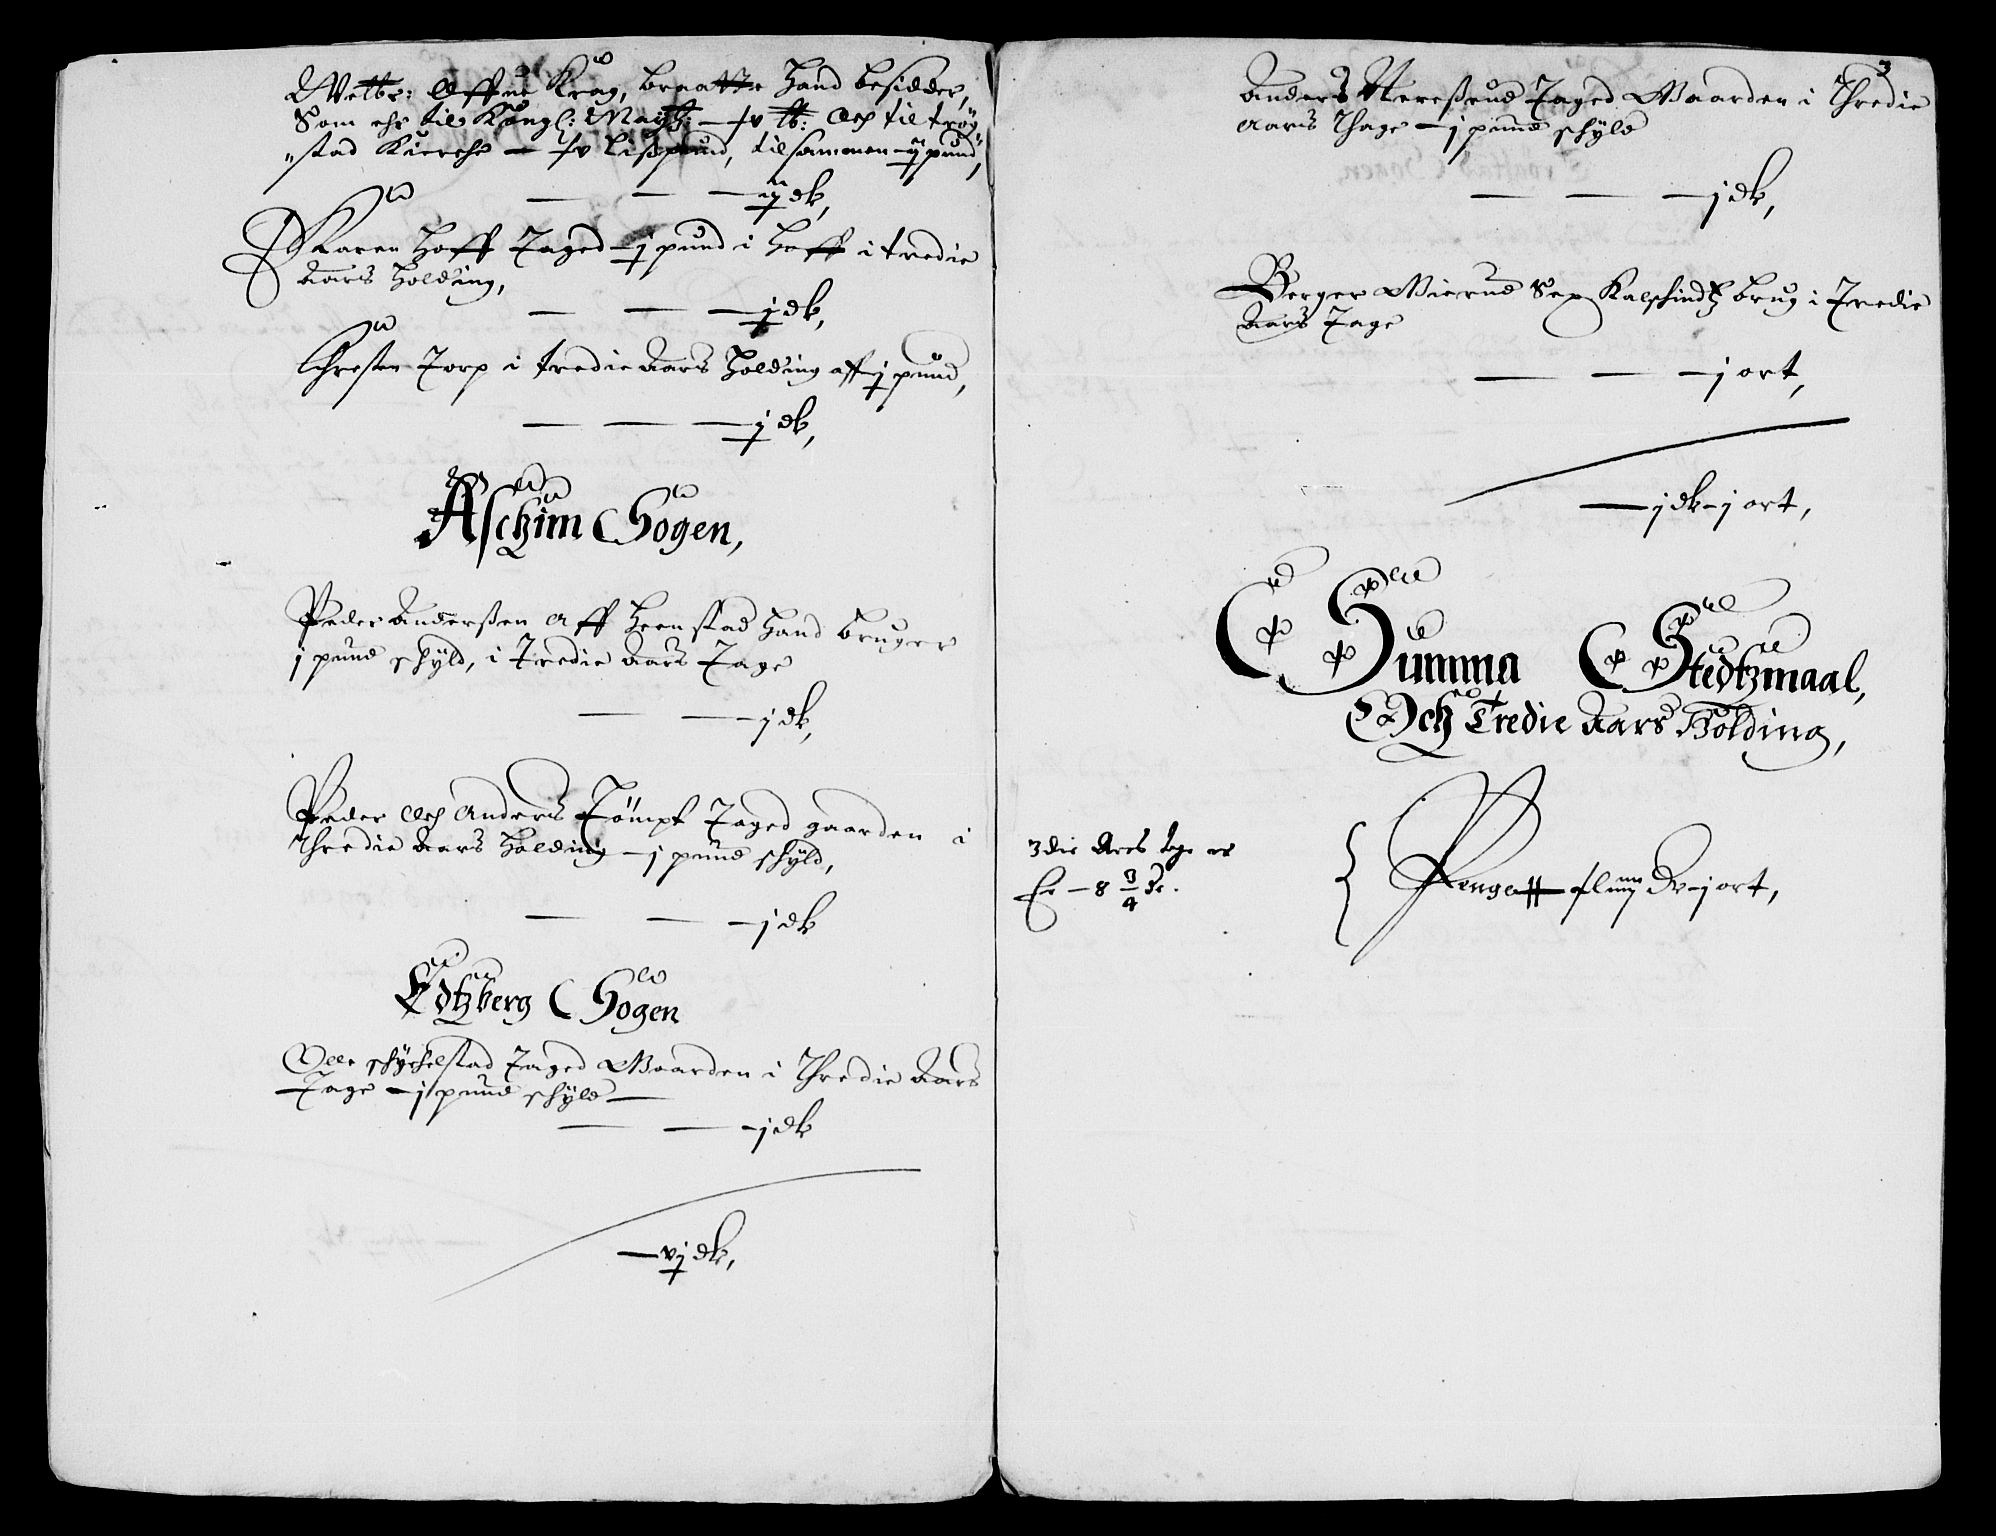 Welb: Offue Krag, braatte hand besidder,
Som ehr til Kongl: Maytz: — xv lb: Och til trøg
"stad Kierche — xv lispund, tilsammen — ij pund,
— — — ij dlr,
Karen Hoff Taged — j pund i Hoff i tredie
Aars Holding,
— — — j dlr,
Chresten Torp i tredie Aars Holding aff j pund,
— — — j dlr,
Aschim Sogen,
Peder Anderßen Aff Heenstad hand bruger
j pund schyld, i Tredie Aars Tage
— — j dlr,
Peder Och Anders Tømpt Taged gaarden i
Thredie Aars Holding — j pund schyld,
— — — j dlr
Edtzberg Sogen
Olle schychelstad Taged Gaarden i Thredie Aars
Tage — j pund schyld —
— — — j dlr
— vj dlr,
3
Anders Nereßrud Taged Gaarden i Thredie
Aars Thage — j pund schyld
— — — j dlr,
Berger Mierud Sex Kalfskindtz brug i Tredie
Aars Tage
— — — j ort,
— j dlr — j ort,
Summa Stedtzmaal,
Och Tredie Aars Holding,
3die Ars tage er
Er — 8 3/4 dr.
Penge — j ort,